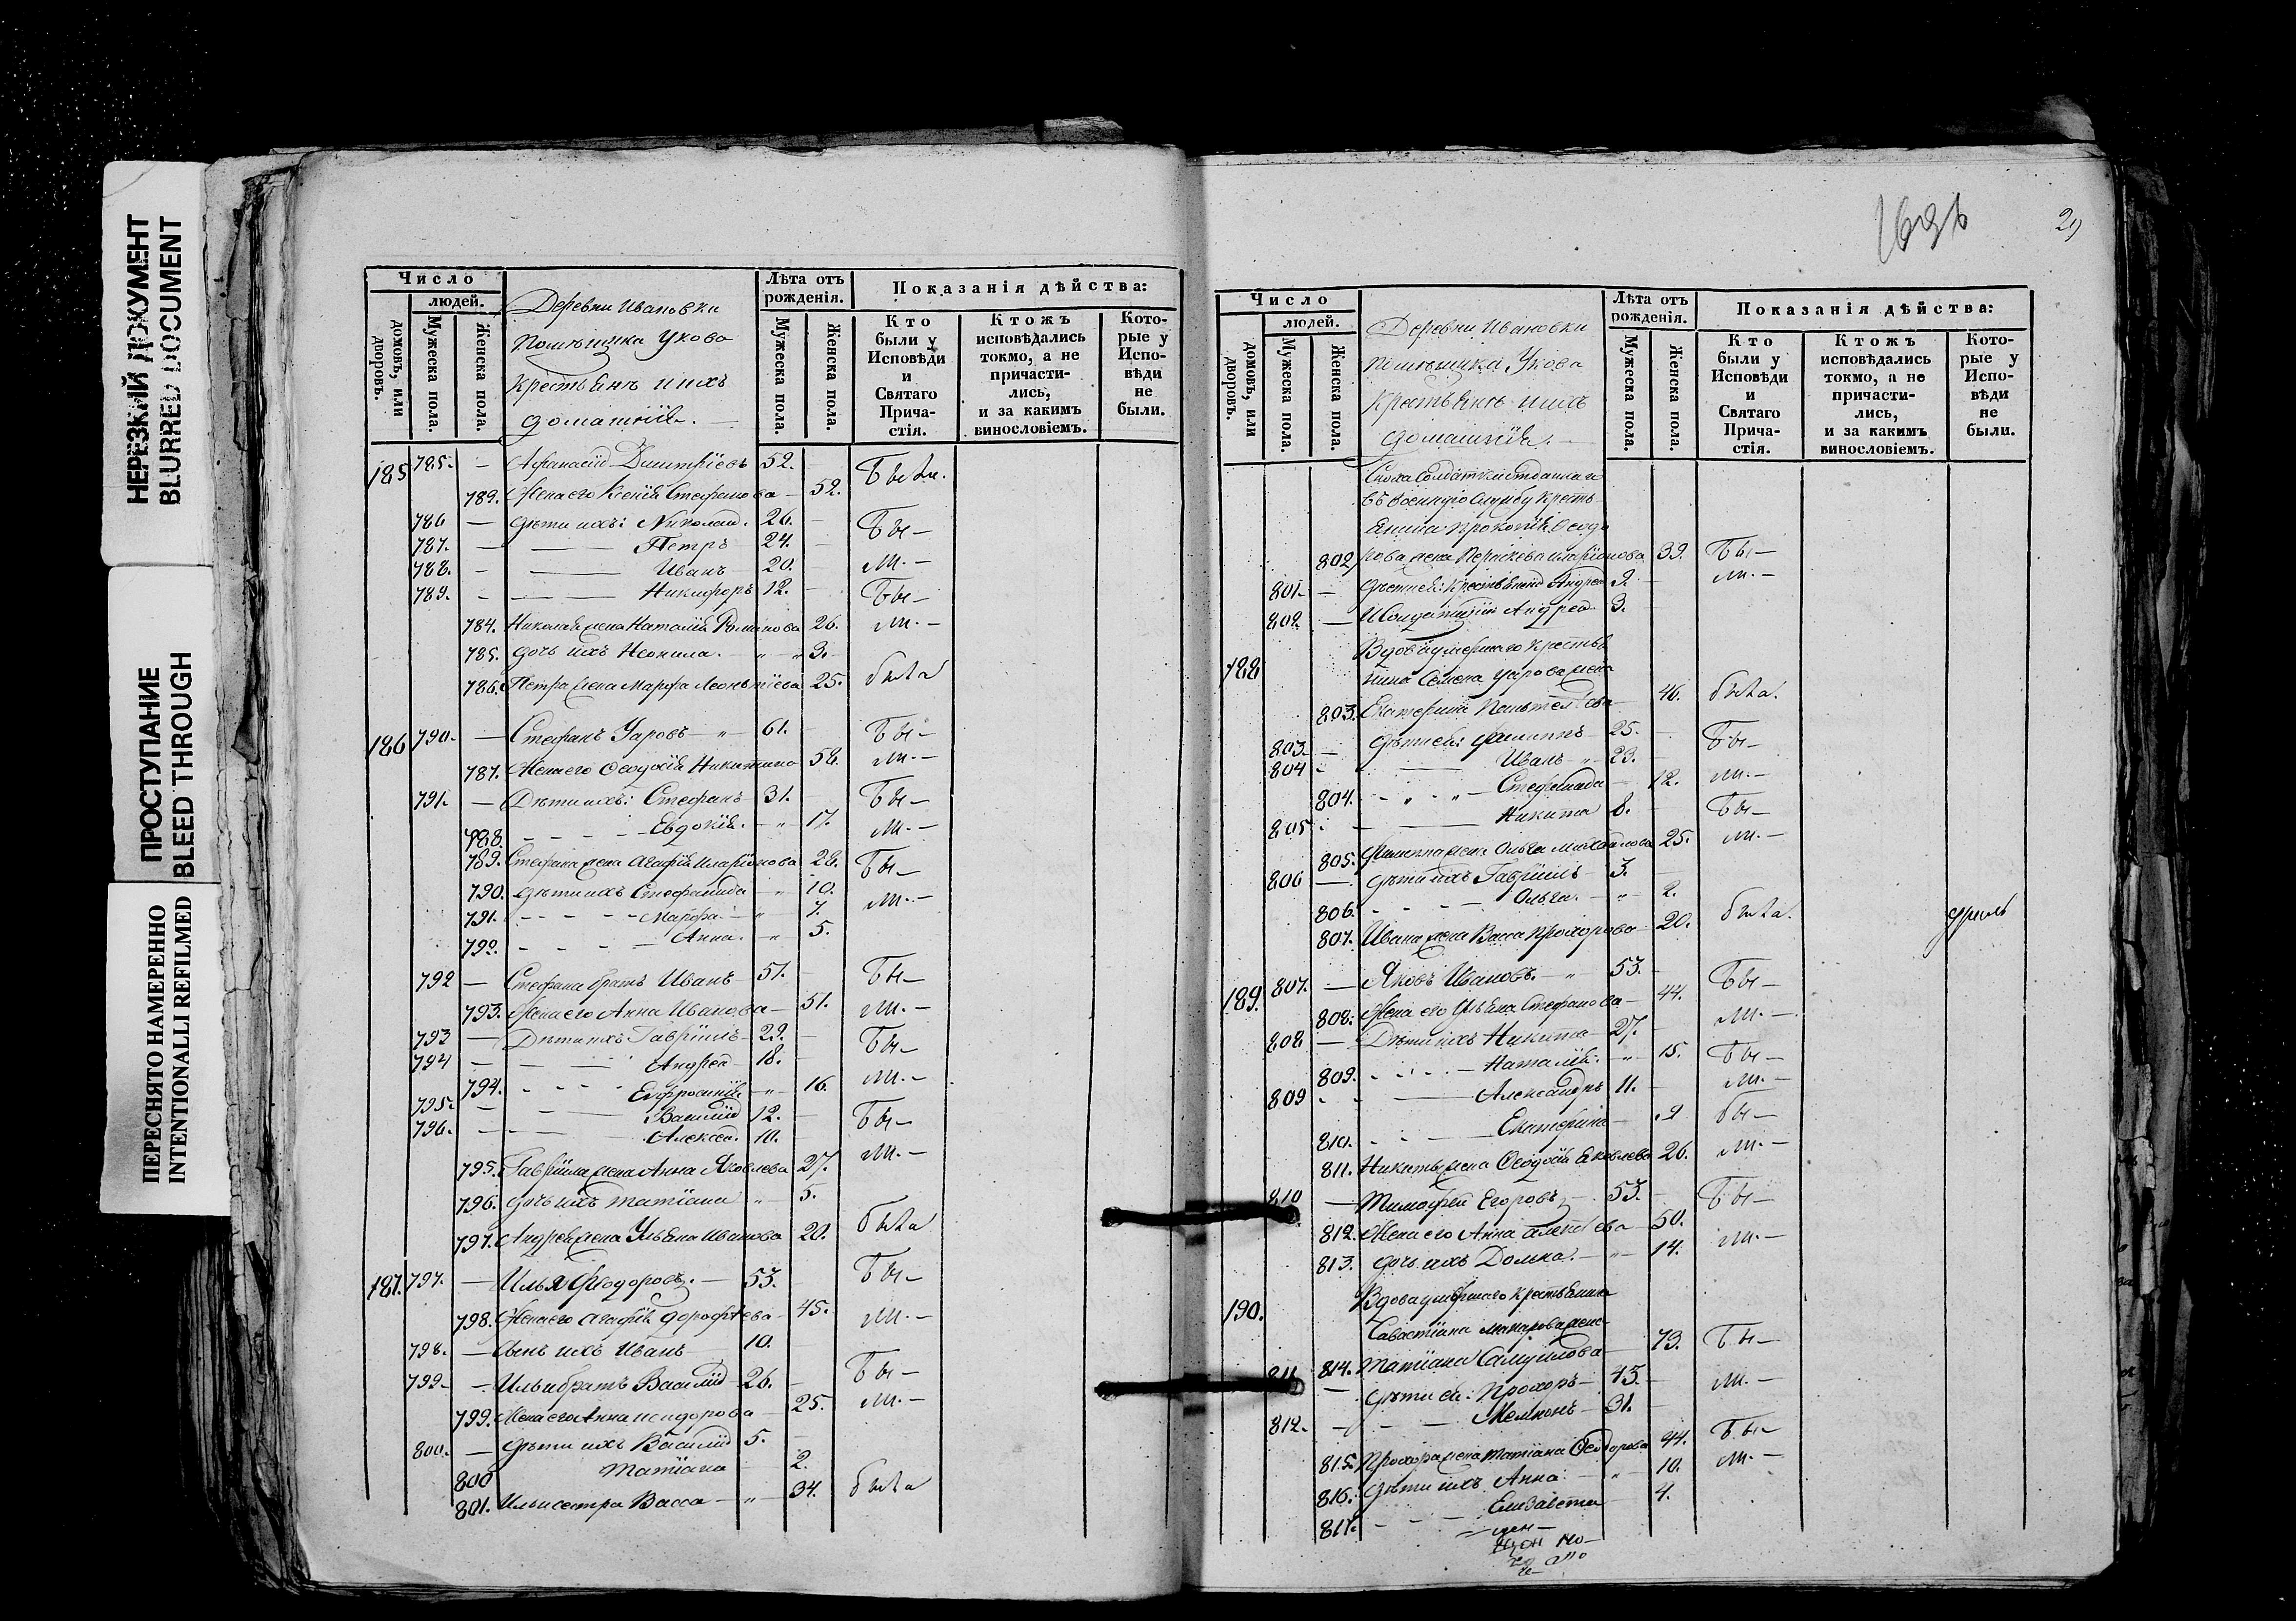 НЕРЕЗКИЙ ДОКУМЕНТ
BLURRED DOCUMENT
ПРОСТУПАНИЕ
BLEED THROUGH
ПЕРЕСНЯТО НАМЕРЕННО
INTENTIONALLI REFILMED
Число
людей.
домовъ, или дворовъ.
Мужеска пола.
Женска пола.
Деревни Ивановки
помѣщика Укова
крестьянъ и ихъ
домашнiе.
Лѣта отъ рожденія.
Мужеска пола.
Женска пола.
Показанія дѣйства:
Кто были у Исповѣди и Святаго Причастія.
Ктожъ исповѣдались токмо, а не причастились, и за какимъ винословіемъ.
Которые у Исповѣди не были.
185 785. — Афанасій Дмитріевъ 52. — Были.
789. Жена его Ксенія Стефанова — 52.
786 — Дѣти ихъ: Николай. 26. — Бы—
787. — Петръ 24. —
788. — Иванъ 20. ли. —
789. — Никифоръ 12. — Бы—
784. Николая жена Наталія Романова 26. ли. —
785. дочь ихъ Неонила. — „ — 3.
786. Петра жена Марфа Леонтіева 25. была
186 790. — Стефанъ Уаровъ — „ — 61. — Бы—
787. Жена его Ѳеодосія Никитина 58. ли. —
791. — Дѣти ихъ: Стефанъ 31. — Бы—
788. — Евдокія. — „ — 17. ли. —
789. Стефана жена Агафія Иларіонова 28. Бы—
790. дѣти ихъ Стефанида — „ 10. ли. —
791. — Марфа — „ 7.
792. — Анна. — „ — 5.
792 — Стефана братъ Иванъ 51. — Бы—
793. Жена его Анна Иванова — 51. ли. —
793 — Дѣти ихъ Гавріилъ — 29. — Бы—
794 — Андрей — 18. —
794. — Ефросинія — „ — 16. ли. —
795. — Василій 12. — Бы—
796. — Алексей. 10. —
795. Гавріила жена Анна Яковлева 27. ли. —
796. дочь ихъ Татіана „ — 5.
797. Андрея жена Ульяна Иванова 20. была
187. 797. — Илья Ѳеодоровъ. — 53. Бы—
798. Жена его Агафія Дорофѣева 45. ли. —
798. — Сынъ ихъ Иванъ 10.
799. — Ильи братъ Василій 26. — Бы—
799. Жена его Анна Исидорова — 25. ли. —
800. — Дѣти ихъ Василій 5. —
800 Татіана — 2.
801. Ильи сестра Васса — „ — 34. была
29
Число
людей.
домовъ, или дворовъ.
Мужеска пола.
Женска пола.
Деревни Ивановки
помѣщика Укова
крестьянъ и ихъ
домашнiе. —
Лѣта отъ рожденія.
Мужеска пола.
Женска пола.
Показанія дѣйства:
Кто были у Исповѣди и Святаго Причастія.
Ктожъ исповѣдались токмо, а не причастились, и за какимъ винословіемъ.
Которые у Исповѣди не были.
въ военную службу кресть-
янина Прокопія Ѳеодо
802 рова жена Перасковья Иларіонова 39. Бы—
801. — Дѣти ей: Андрей 9. — ли. —
802. — Андрей 3. —
188 Вдова умершаго крестья
нина Семена Уарова жена
803. Екатерина Пантелѣева — 46. была.
803. — Дѣти ей: Филиппъ 25. — Бы—
804 — Иванъ — „ 23. —
804. — Стефанида — 12. ли. —
805 — Никита 8. — Бы—
805. Филиппа жена Ольга Михайлова 25. ли. —
806 — дѣти ихъ Гавріилъ 3. —
806. — Ольга. — „ — 2.
807. Ивана жена Васса Прохорова 20. была.
189. 807. — Яковъ Ивановъ. — „ 53. — Бы—
808. Жена его Ульяна Стефанова — 44. ли. —
808 — Дѣти ихъ Никита 27. —
809. — Наталія. — „ — 15. Бы—
809 — Александръ 11. — ли. —
810. — Екатерина — 9 Бы—
811. Никиты жена Ѳеодосія Яковлева 26. ли. —
810 — Тимофей Егоровъ — 53. Бы—
812. Жена его Анна — 50. ли. —
813. дочь ихъ Домна. — „ — 14.
190. Вдова умершаго крестьянина
Савастіана Макарова жена
814. Татіана Самуилова — 73. Бы—
811 — Дѣти ей: Прохоръ — 45. — ли. —
812. — Мемнонъ — 31. —
815. Прохора жена Татіана Ѳеодорова 44. Бы—
816. дѣти ихъ Анна. — „ 10. ли. —
817. — Елизавета 4.